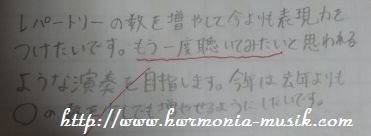 レパートリーの数を増やして今よりも表現力を
つけたいです。もう一度聴いてみたいと思われる
ような演奏を目指します。今年は去年よりも
〇の数を でも増やせるようにしたいです。
http://www.hormonia-musik.com/